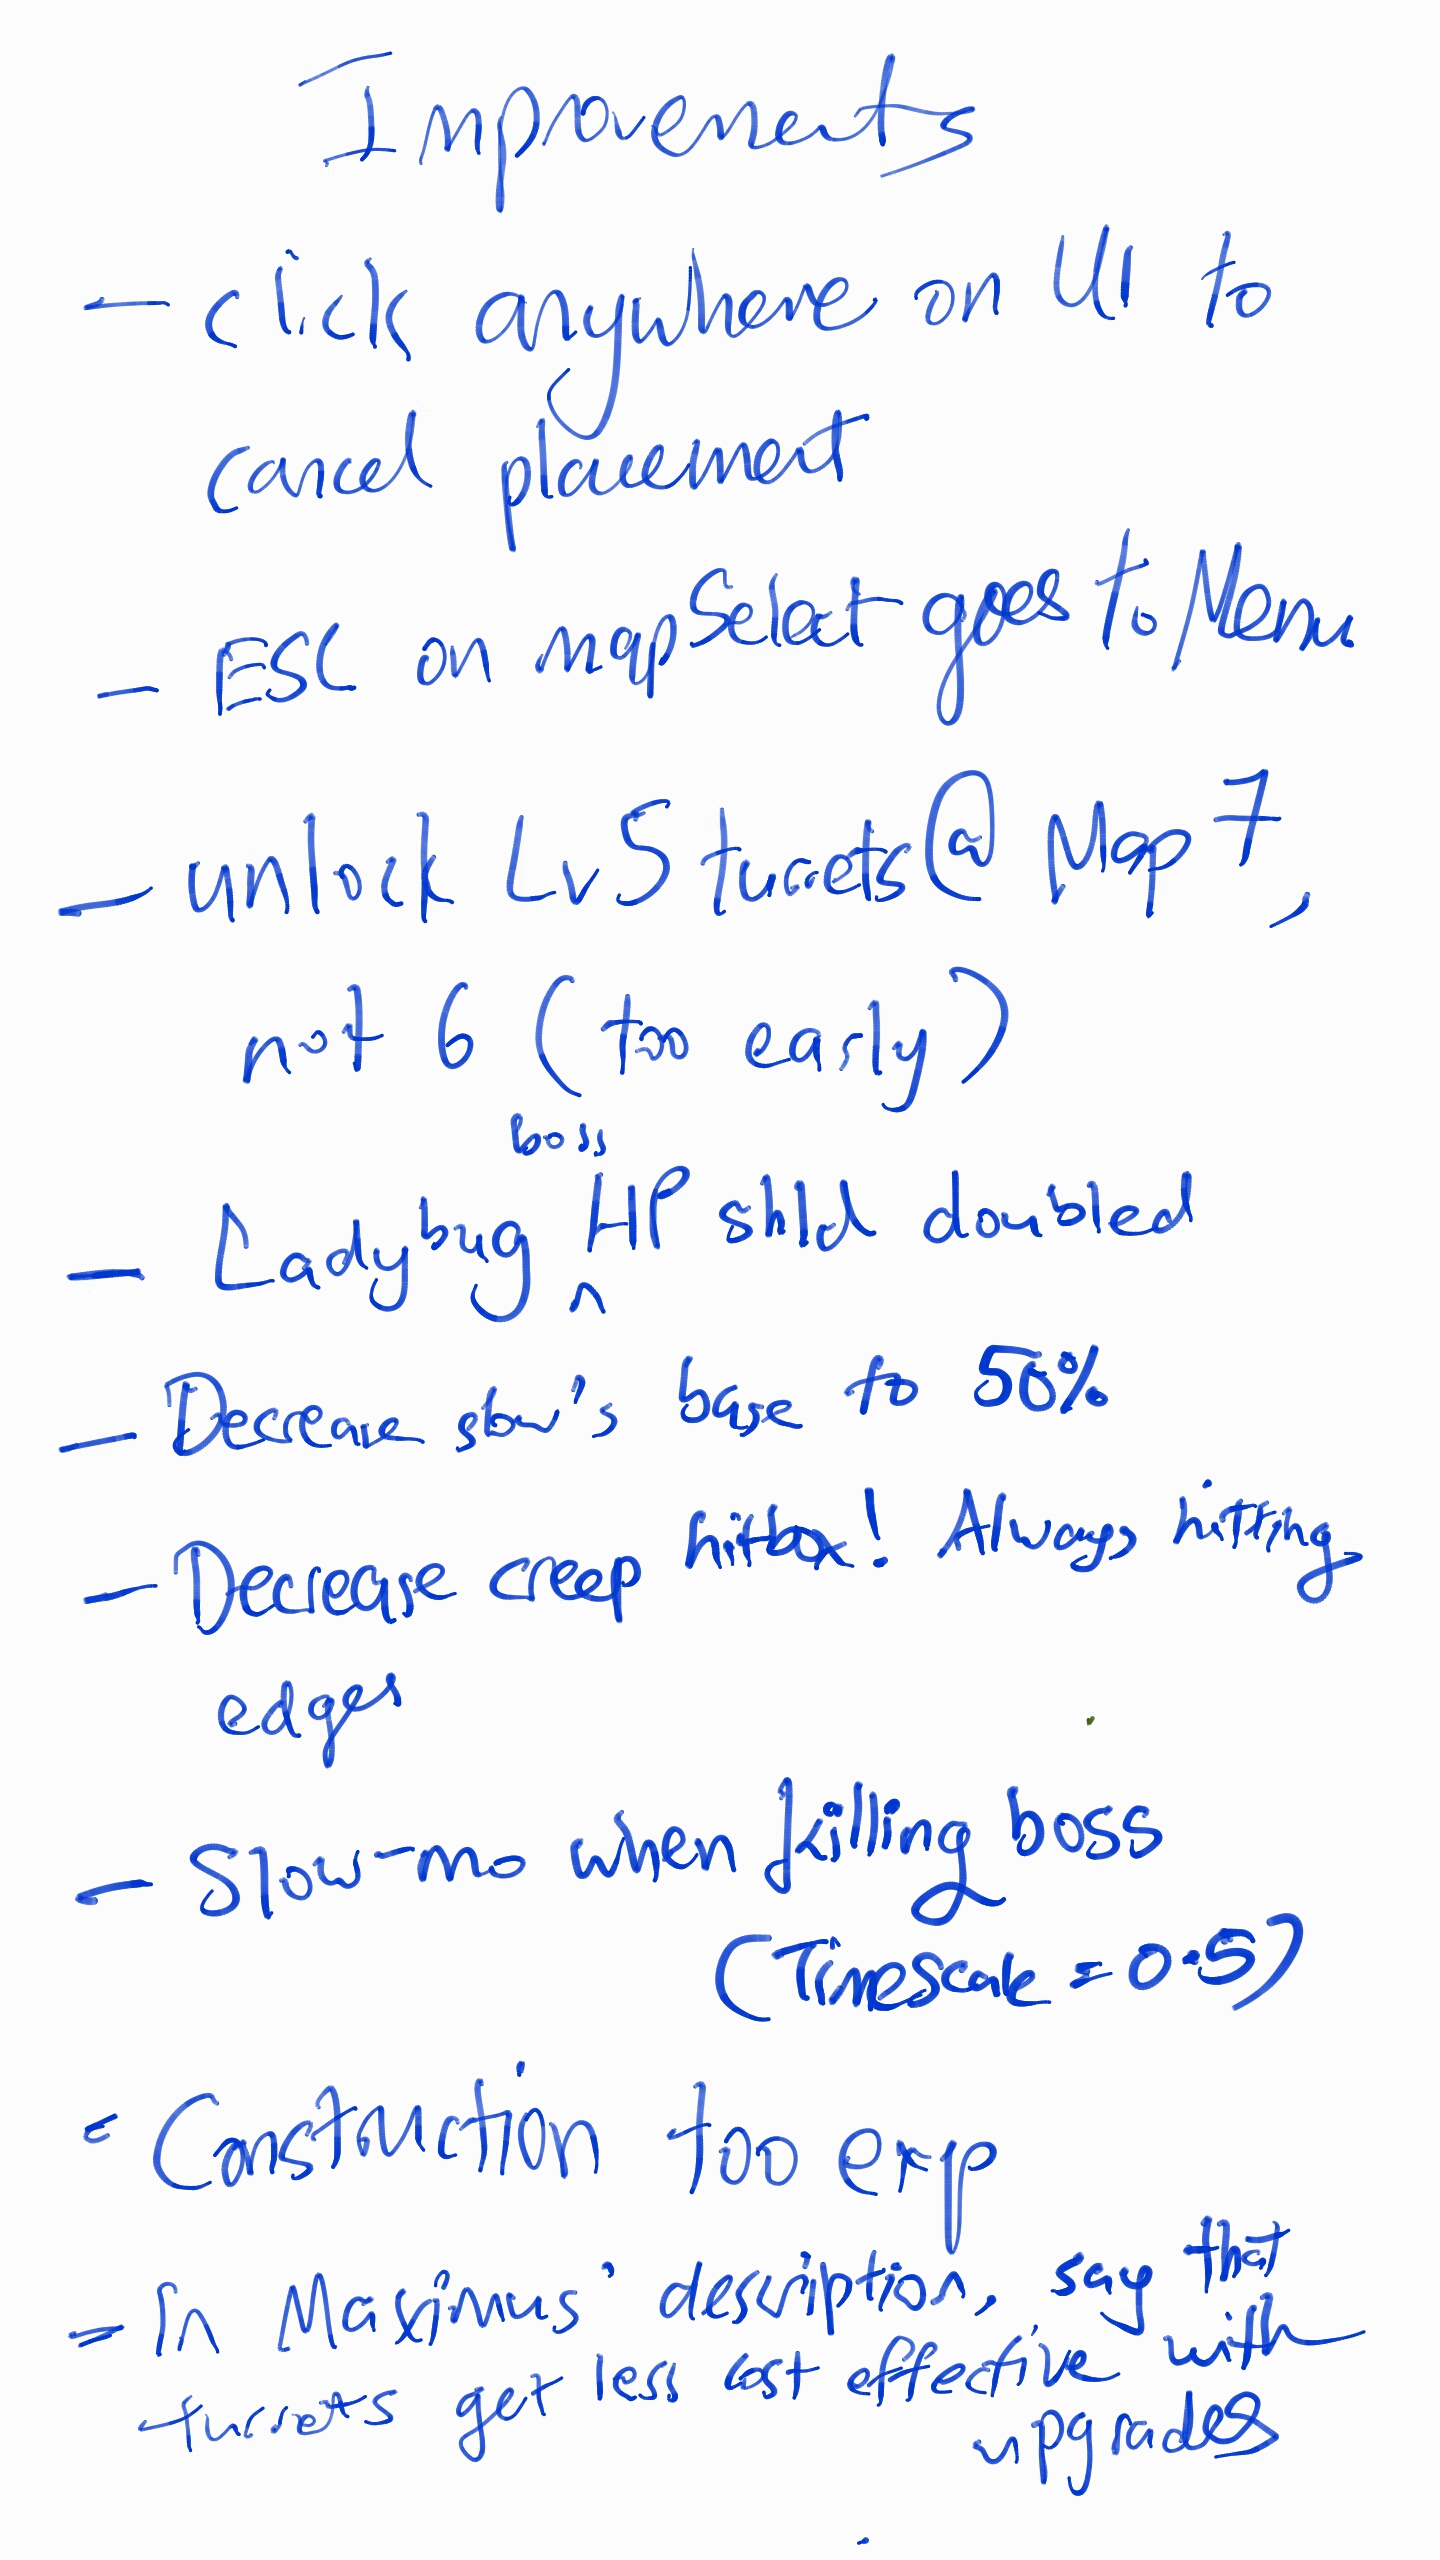 Improvements
- click anywhere on UI to
cancel placement
- ESC on mapSelect goes to Menu
- unlock Lv5 turrets@ Map 7,
not 6 (too early)
boss
- Ladybug ^ HP shld doubled
- Decrease slow's base to 50%
- Decrease creep hitbox! Always hitting
edges
- Slow-mo when killing boss
(Timescale = 0.5)
- Construction too exp
- In Maximus' description, say that
turrets get less cost effective with
upgrades